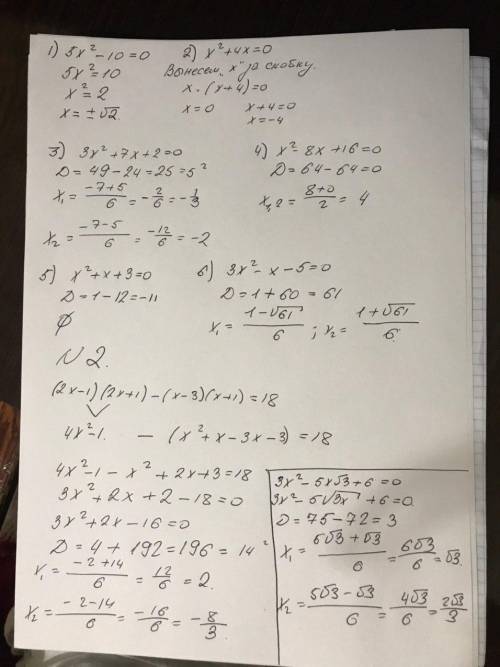 1) 5x² - 10 = 0
5x² = 10
x² = 2
x = ±√2.
2) x² + 4x = 0
Вынесем "x" за скобку.
x · (x + 4) = 0
x = 0 x + 4 = 0
x = -4
3) 3x² + 7x + 2 = 0
D = 49 - 24 = 25 = 5²
x₁ = (-7+5)/6 = -2/6 = -1/3
x₂ = (-7-5)/6 = -12/6 = -2
4) x² - 8x + 16 = 0
D = 64 - 64 = 0
x₁,₂ = (8+0)/2 = 4
5) x² + x + 3 = 0
D = 1 - 12 = -11
∅
6) 3x² - x - 5 = 0
D = 1 + 60 = 61
x₁ = (1-√61)/6 ; x₂ = (1+√61)/6
N 2.
(2x-1)(2x+1) - (x-3)(x+1) = 18
4x² - 1. - (x² + x - 3x - 3) = 18
4x² - 1 - x² + 2x + 3 = 18
3x² + 2x + 2 - 18 = 0
3x² + 2x - 16 = 0
D = 4 + 192 = 196 = 14²
x₁ = (-2+14)/6 = 12/6 = 2.
x₂ = (-2-14)/6 = -16/6 = -8/3.
3x² - 5x√3 + 6 = 0
3x² - 5√3x + 6 = 0
D = 75 - 72 = 3
x₁ = (5√3 + √3)/6 = 6√3/6 = √3.
x₂ = (5√3 - √3)/6 = 4√3/6 = 2√3/3